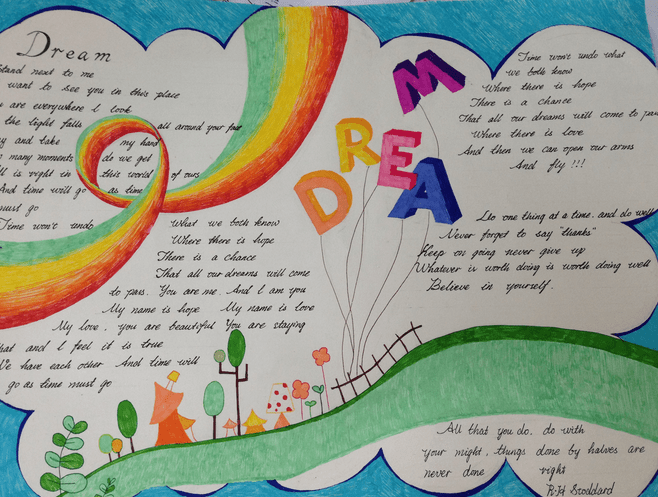 Dream
Stand next to me
want to see you in this place
are everywhere I look
the light falls all around your feet
and take my hand
many moments do we get
is right in this world of ours
And time will go as time
must go
Time won't undo What we both know
Where there is hope
There is a chance
That all our dreams will come
to pass. You are me. And I am you
My name is hope My name is love
My love, you are beautiful You are staying
that and I feel it is true
We have each other And time will
go as time must go
DREAM
Time won't undo what
we both know
Where there is hope
There is a chance
That all our dreams will come to pass
Where there is love
And then we can open our arms
And fly !!!
Do one thing at a time, and do well
Never forget to say "thanks"
Keep on going never give up
Whatever is worth doing is worth doing well
Believe in yourself.
All that you do, do with
your might, things done by halves are
never done right
R·H Stoddard